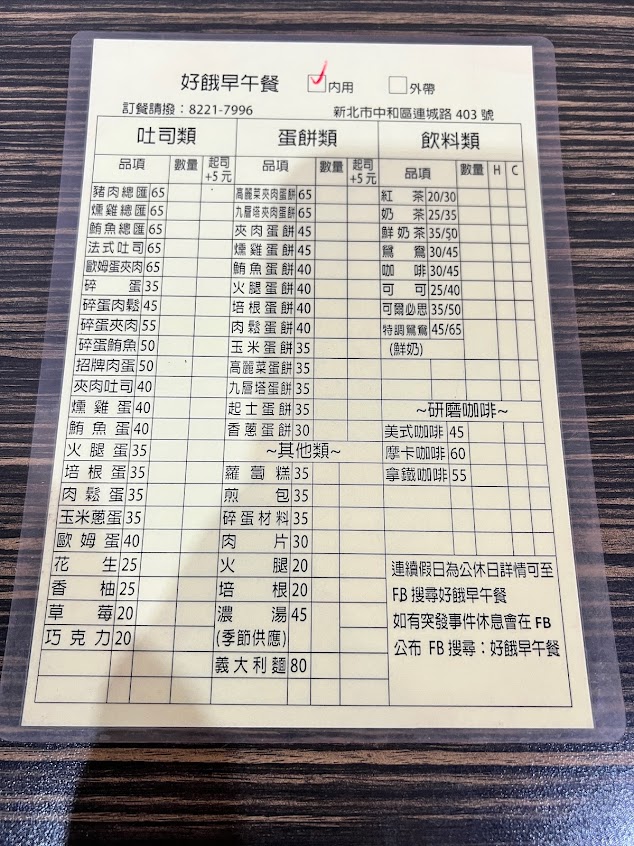 好餓早午餐 內用 外帶
訂餐請撥：8221-7996 新北市中和區連城路 403 號
吐司類
品項 數量 起司+5元
豬肉總匯 65
燻雞總匯 65
鮪魚總匯 65
法式吐司 65
歐姆蛋夾肉 65
碎蛋 35
碎蛋肉鬆 45
碎蛋夾肉 55
碎蛋鮪魚 50
招牌肉蛋 50
夾肉吐司 40
燻雞蛋 40
鮪魚蛋 40
火腿蛋 35
培根蛋 35
肉鬆蛋 35
玉米蔥蛋 35
歐姆蛋 40
花生 25
香柚 25
草莓 20
巧克力 20
蛋餅類
品項 數量 起司+5元
高麗菜夾肉蛋餅 65
九層塔夾肉蛋餅 65
夾肉蛋餅 45
燻雞蛋餅 45
鮪魚蛋餅 40
火腿蛋餅 40
培根蛋餅 40
肉鬆蛋餅 40
玉米蛋餅 35
高麗菜蛋餅 35
九層塔蛋餅 35
起士蛋餅 35
香蔥蛋餅 30
~其他類~
蘿蔔糕 35
煎包 35
碎蛋材料 35
肉片 30
火腿 20
培根 20
濃湯 45
(季節供應)
義大利麵 80
飲料類
品項 數量 H C
紅茶 20/30
奶茶 25/35
鮮奶茶 35/50
鴛鴦 30/45
咖啡 30/45
可可 25/40
可爾必思 35/50
特調鴛鴦 45/65
(鮮奶)
~研磨咖啡~
美式咖啡 45
摩卡咖啡 60
拿鐵咖啡 55
連續假日為公休日詳情可至
FB 搜尋好餓早午餐
如有突發事件休息會在 FB
公布 FB 搜尋：好餓早午餐